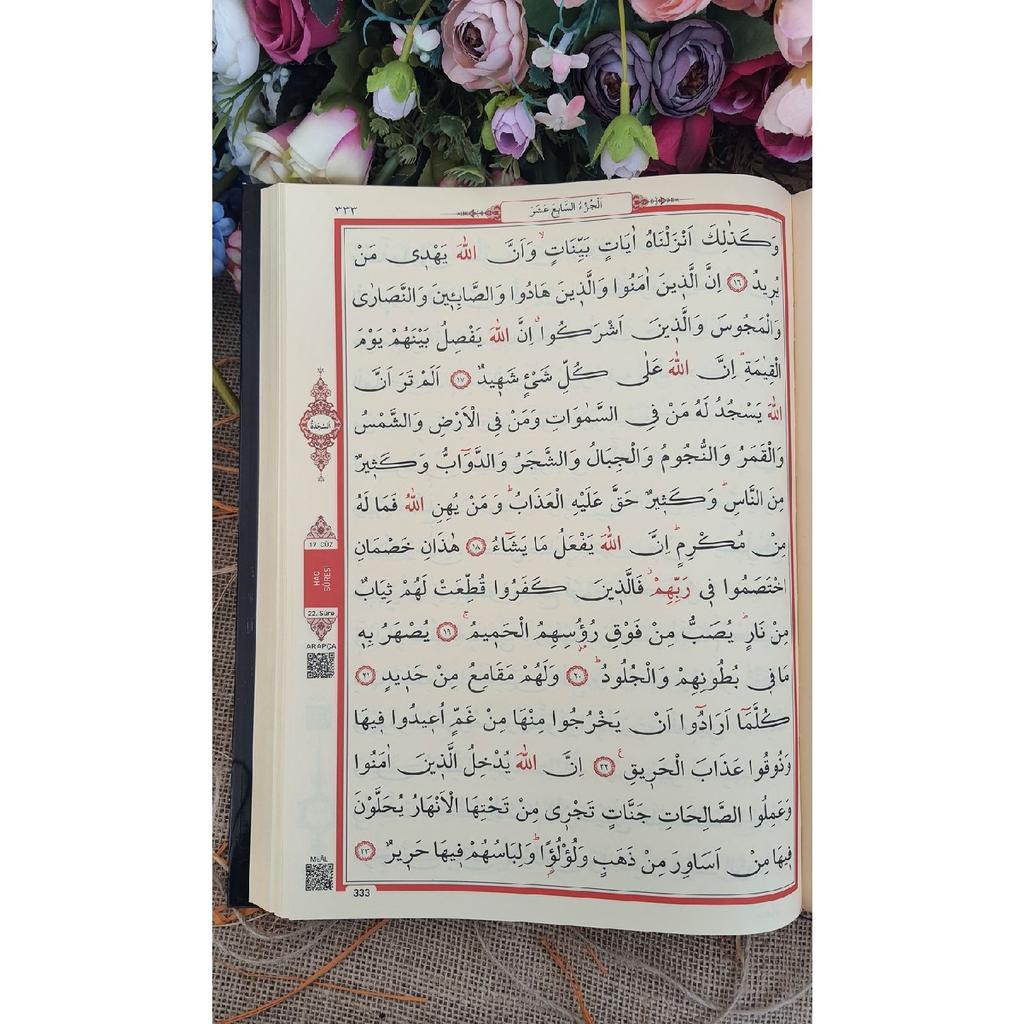 ٣٣٣
اَلْجُزْءُ السَّابِعَ عَشَرَ
وَكَذٰلِكَ اَنْزَلْنَاهُ اٰيَاتٍ بَيِّنَاتٍۙ وَاَنَّ اللّٰهَ يَهْد۪ي مَنْ
يُر۪يدُ ﴿١٦﴾ اِنَّ الَّذ۪ينَ اٰمَنُوا وَالَّذ۪ينَ هَادُوا وَالصَّابِـ۪ٔينَ وَالنَّصَارٰى
وَالْمَجُوسَ وَالَّذ۪ينَ اَشْرَكُواۗ اِنَّ اللّٰهَ يَفْصِلُ بَيْنَهُمْ يَوْمَ
الْقِيٰمَةِۜ اِنَّ اللّٰهَ عَلٰى كُلِّ شَيْءٍ شَه۪يدٌ ﴿١٧﴾ اَلَمْ تَرَ اَنَّ
اللّٰهَ يَسْجُدُ لَهُ مَنْ فِي السَّمٰوَاتِ وَمَنْ فِي الْاَرْضِ وَالشَّمْسُ
وَالْقَمَرُ وَالنُّجُومُ وَالْجِبَالُ وَالشَّجَرُ وَالدَّوَٓابُّ وَكَث۪يرٌ
مِنَ النَّاسِۜ وَكَث۪يرٌ حَقَّ عَلَيْهِ الْعَذَابُۜ وَمَنْ يُهِنِ اللّٰهُ فَمَا لَهُ
مِنْ مُكْرِمٍۜ اِنَّ اللّٰهَ يَفْعَلُ مَا يَشَٓاءُ ﴿١٨﴾ هٰذَانِ خَصْمَانِ
اخْتَصَمُوا ف۪ي رَبِّهِمْۘ فَالَّذ۪ينَ كَفَرُوا قُطِّعَتْ لَهُمْ ثِيَابٌ
مِنْ نَارٍۜ يُصَبُّ مِنْ فَوْقِ رُؤُ۫سِهِمُ الْحَم۪يمُۚ ﴿١٩﴾ يُصْهَرُ بِه۪
مَا ف۪ي بُطُونِهِمْ وَالْجُلُودُۜ ﴿٢٠﴾ وَلَهُمْ مَقَامِعُ مِنْ حَد۪يدٍ ﴿٢١﴾
كُلَّمَٓا اَرَادُٓوا اَنْ يَخْرُجُوا مِنْهَا مِنْ غَمٍّ اُع۪يدُوا ف۪يهَا
وَذُوقُوا عَذَابَ الْحَر۪يقِ۟ ﴿٢٢﴾ اِنَّ اللّٰهَ يُدْخِلُ الَّذ۪ينَ اٰمَنُوا
وَعَمِلُوا الصَّالِحَاتِ جَنَّاتٍ تَجْر۪ي مِنْ تَحْتِهَا الْاَنْهَارُ يُحَلَّوْنَ
ف۪يهَا مِنْ اَسَاوِرَ مِنْ ذَهَبٍ وَلُؤْلُؤً۬اۜ وَلِبَاسُهُمْ ف۪يهَا حَر۪يرٌ ﴿٢٣﴾
اَلسَّجْدَةُ
17. CÜZ
HAC
SÛRESİ
22. Sûre
ARAPÇA
MEÂL
333